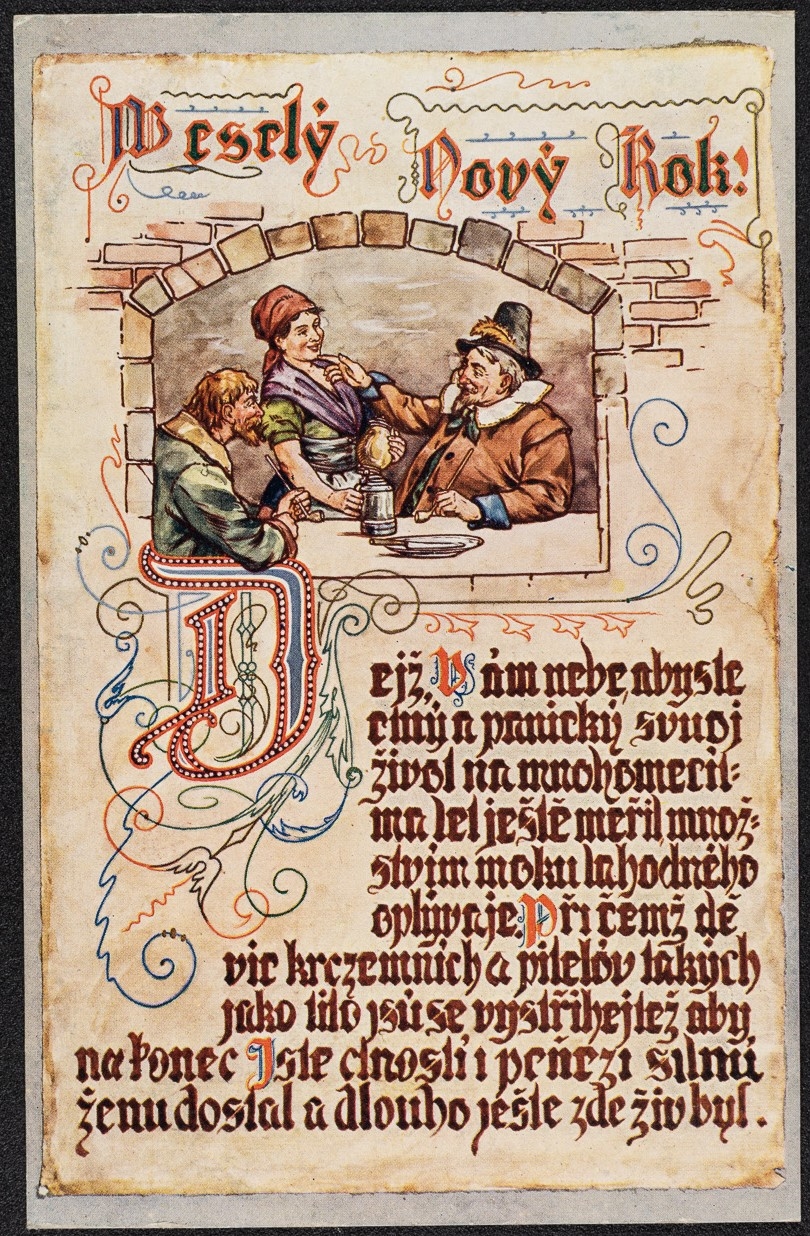 Weselý Nový Rok!
Dejž Vám nebe, abyste
ctný a panický svuoj
život na mnohomecit=
ma let ještě měřil množ=
stvim moku lahodného
oplývaje. Při čemž dě
vic krczemnich a pitelóv takých
jako tito jsú se vystřihejtež aby
na konec Jste ctnosti i peněz i silnú
ženu dostal a dlouho ješte zde živ byl.